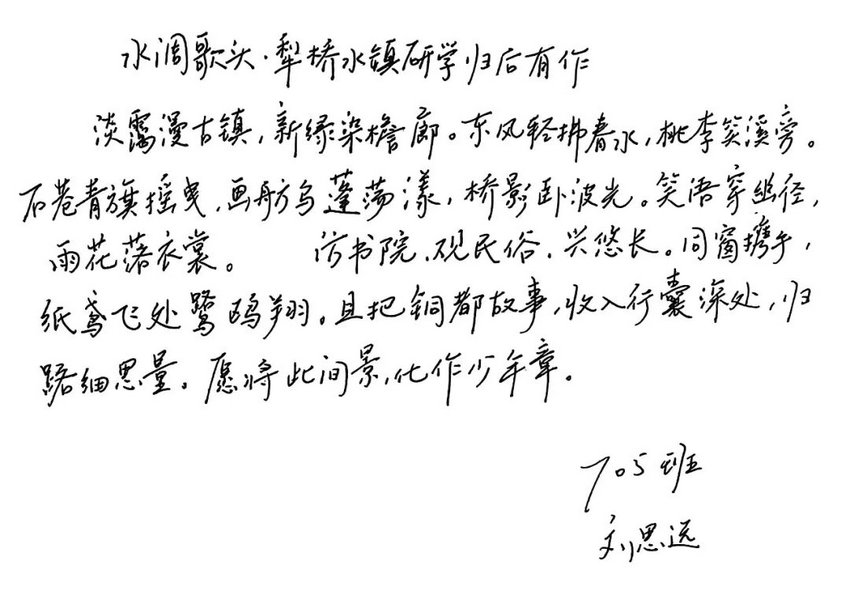 水调歌头·犁桥水镇研学归后有作
淡霭漫古镇，新绿染檐廊。东风轻拂春水，桃李笑溪旁。
石巷青旗摇曳，画舫乌蓬荡漾，桥影卧波光。笑语穿幽径，
雨花落衣裳。 访书院，观民俗，兴悠长。同窗携手，
纸鸢飞处鹭鸥翔。且把铜都故事，收入行囊深处，归
路细思量。愿将此间景，化作少年章。
705班
刘思远